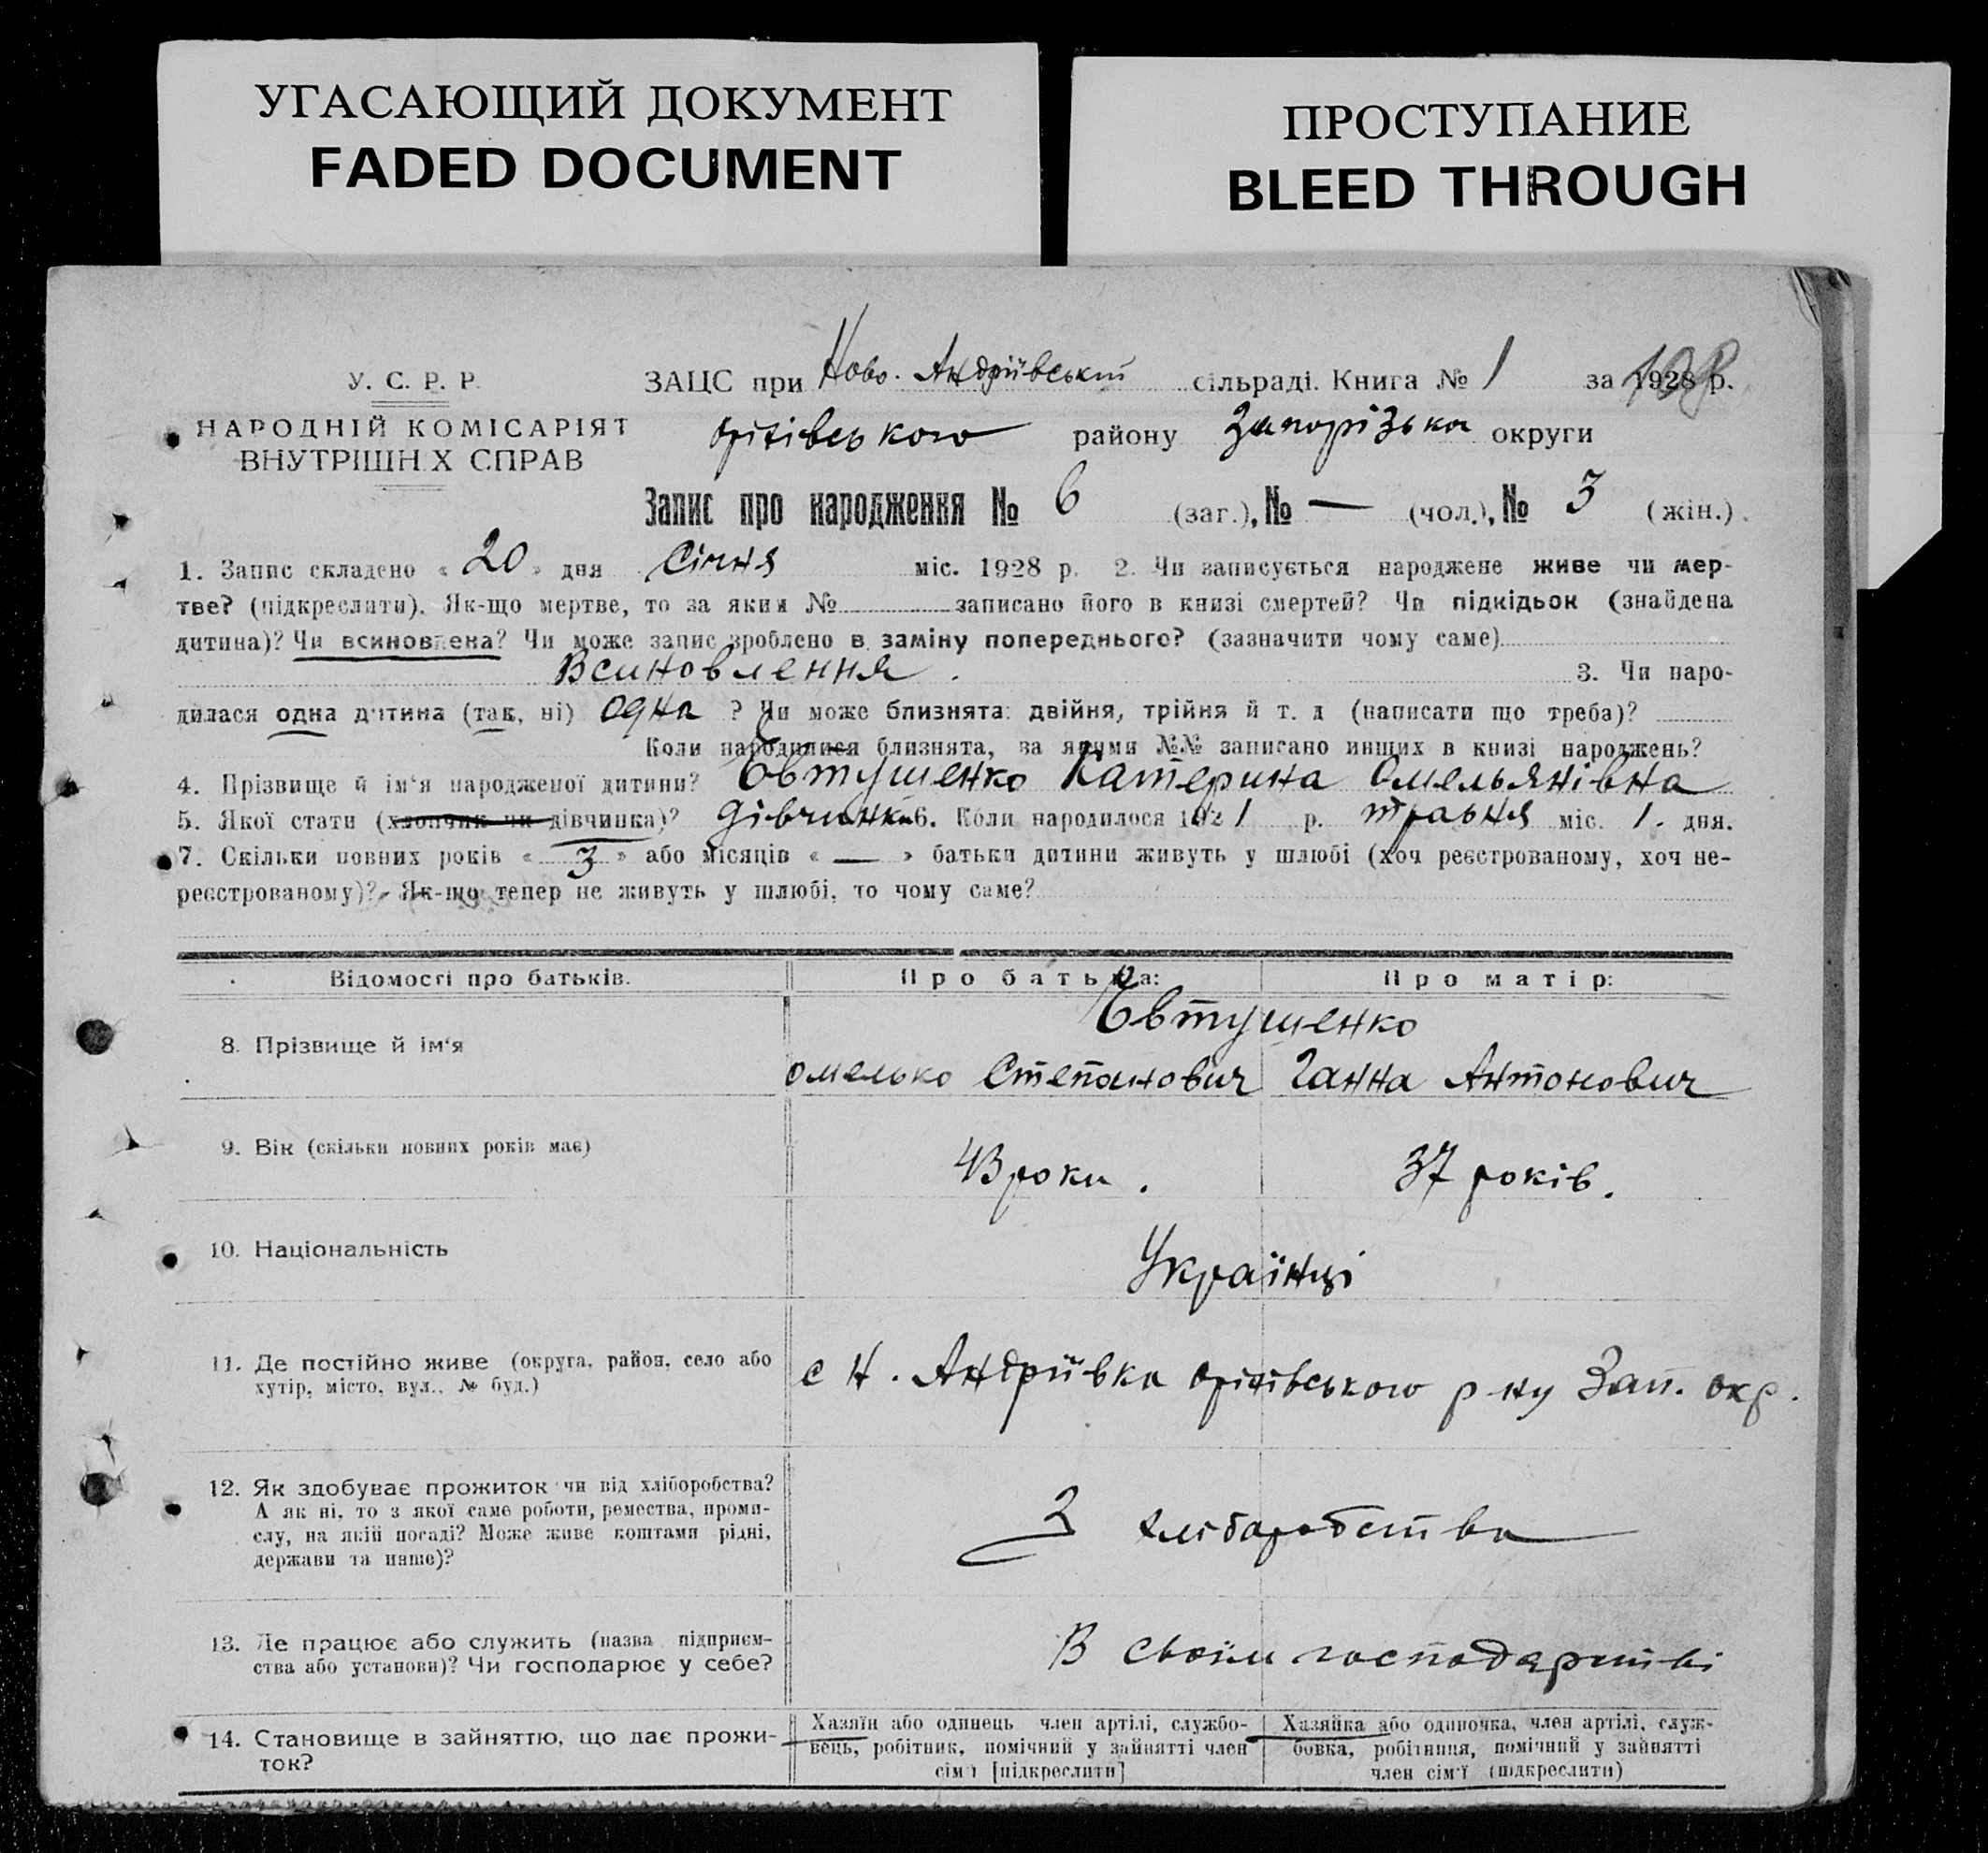 УГАСАЮЩИЙ ДОКУМЕНТ
FADED DOCUMENT
ПРОСТУПАНИЕ
BLEED THROUGH
У. С. Р. Р.
НАРОДНІЙ КОМІСАРІЯТ
ВНУТРІШН Х СПРАВ
ЗАЦС при Ново. Андріівський сільраді. Книга № 1 за 1928 р.
оріхівського району Запорізька округи
Запис про народження № 6 (заг.), № — (чол.), № 3 (жін.).
1. Запис складено « 20 » дня Січня міс. 1928 р. 2. Чи записується народжене живе чи мер-
тве? (підкреслити). Як-що мертве, то за яким № записано його в книзі смертей? Чи підкідьок (знайдена
дитина)? Чи всиновлена? Чи може запис зроблено в заміну попереднього? (зазначити чому саме)
Всиновлення . 3. Чи наро-
дилася одна дитина (так, ні) одна ? Чи може близнята: двійня, трійня й т. д (написати що треба)?
Коли народилися близнята, за якими №№ записано инших в книзі народжень?
4. Прізвище й ім'я народженої дитини? Євтушенко Катерина Омельянівна
5. Якої стати (хлопчик чи дівчинка)? дівчинка 6. Коли народилося 1921 р. травня міс. 1. дня.
7. Скільки повних років « 3 » або місяців « — » батьки дитини живуть у шлюбі (хоч реєстрованому, хоч не-
реєстрованому)? Як-що тепер не живуть у шлюбі, то чому саме?
Відомості про батьків. Про батька: Про матір:
Євтушенко
8. Прізвище й ім'я омелько Степанович Ганна Антонович
9. Вік (скільки повних років має) 43 роки . 37 років.
10. Національність Українці
11. Де постійно живе (округа, район, село або
хутір, місто, вул., № буд.) с Н. Андріівка оріхівського р-ну Зап. окр.
12. Як здобуває прожиток чи від хліборобства?
А як ні, то з якої саме роботи, ремества, проми-
слу, на якій посаді? Може живе коштами рідні,
держави та инше)?
З хліборобства
13. Де працює або служить (назва підприєм-
ства або установи)? Чи господарює у себе?
В своїм господарстві
14. Становище в зайняттю, що дає прожи-
ток?
Хазяїн або одинець член артілі, службо-
вець, робітник, помічний у зайнятті член
сім'ї [підкреслити]
Хазяйка або одиночка, член артілі, служ-
бовка, робітниця, помічний у зайнятті
член сім'ї (підкреслити)